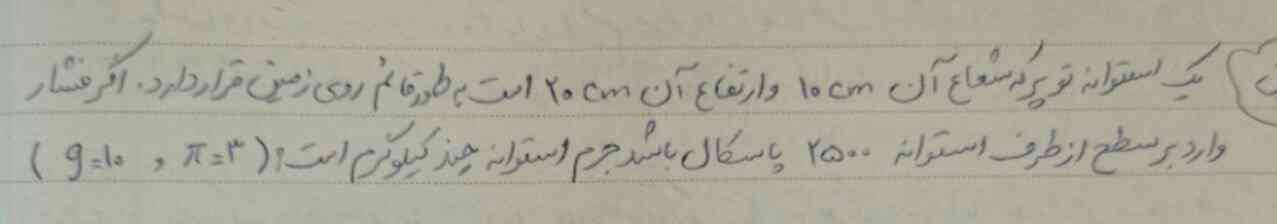 یک استوانه توپر که شعاع آن ۱۰ cm وارتفاع آن ۲۰ cm است به طور قائم روی زمین قرار دارد. اگر فشار
وارد بر سطح از طرف استوانه ۲۵۰۰ پاسکال باشد جرم استوانه چند کیلوگرم است؟ (π=۳ , g=۱۰)